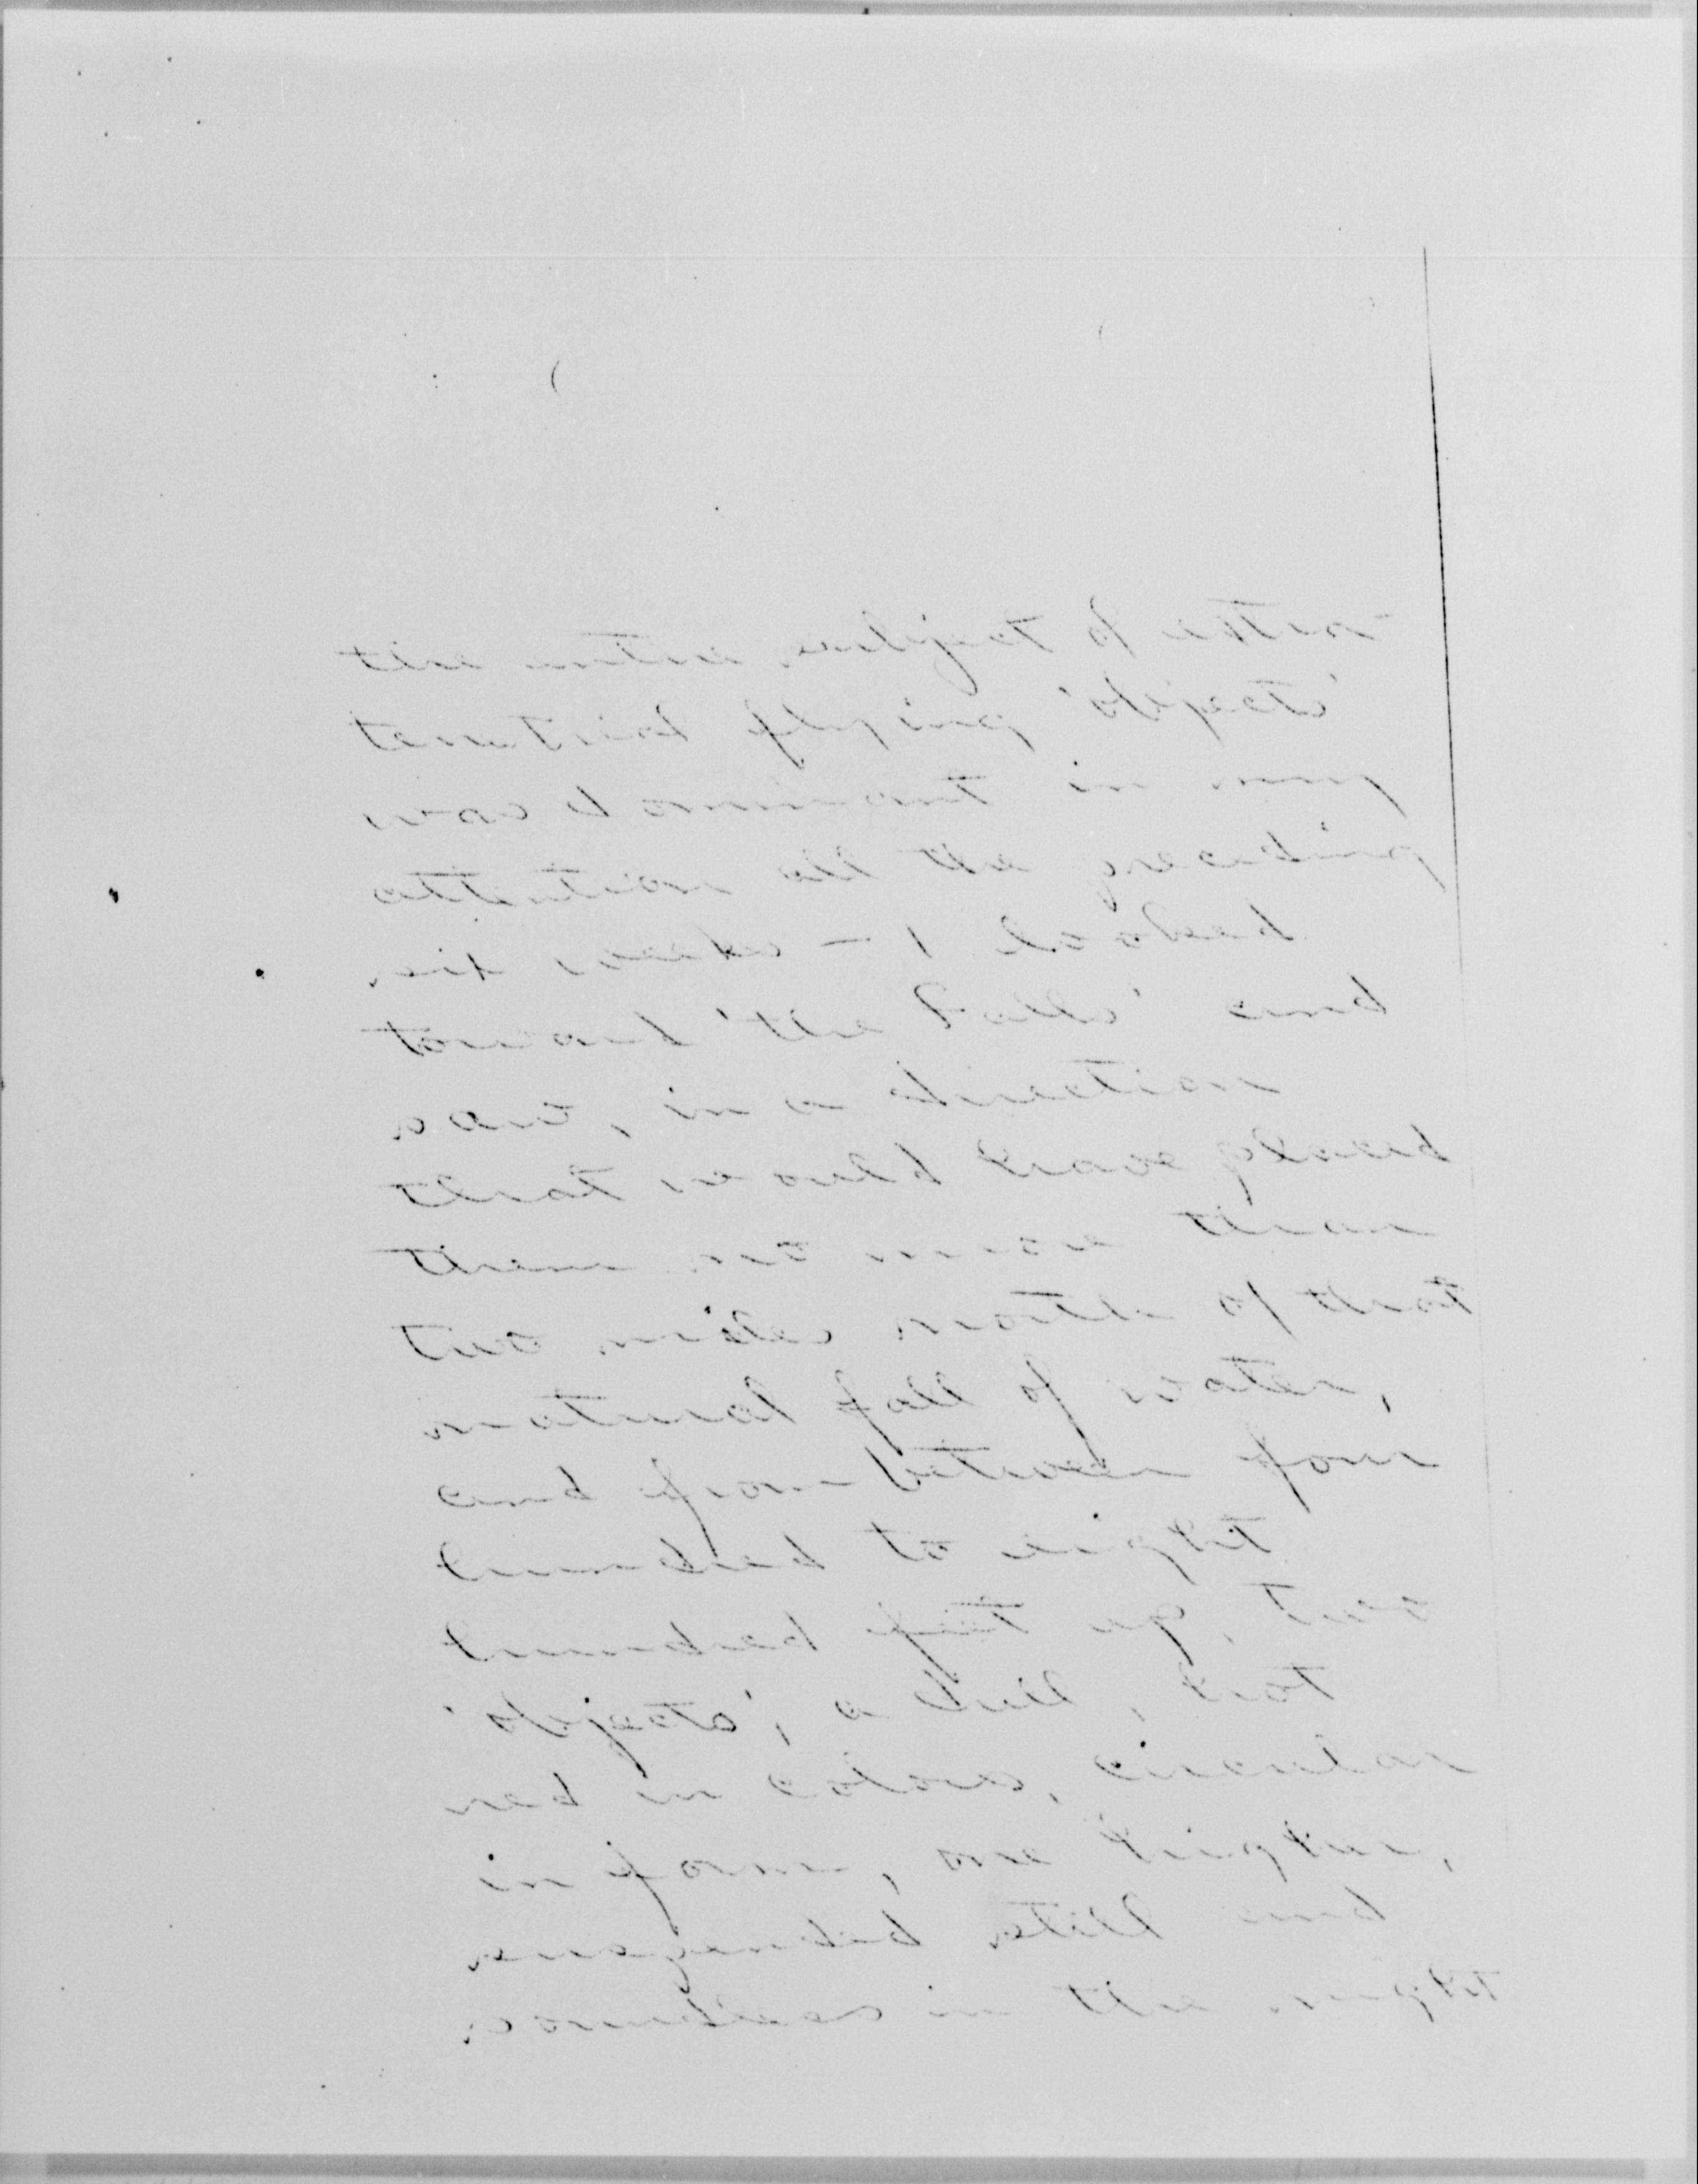 the entire subject of
flying 'objects'
was dominant in my
attention all the preceding
six weeks — I looked
toward 'the Falls' and
saw, in a direction
that would have placed
them no more than
two miles north of that
natural fall of water,
and from four
hundred to eight
hundred fifty up, two
'objects', a dull, hot
red in color, circular
in form, one higher,
suspended still and
soundless in the night